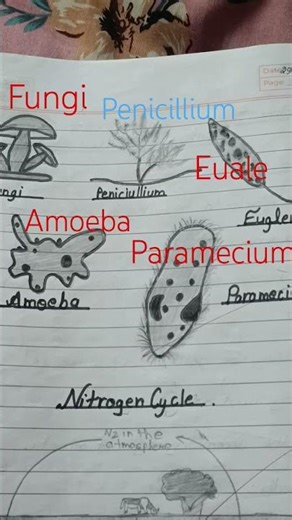 Date
Page
Fungi
Penicillium
Euale
ngi
Peniciullium
Eugle
Amoeba
Paramecium
Amoeba
Parameci
Nitrogen Cycle.
N2 in the
atmosphere